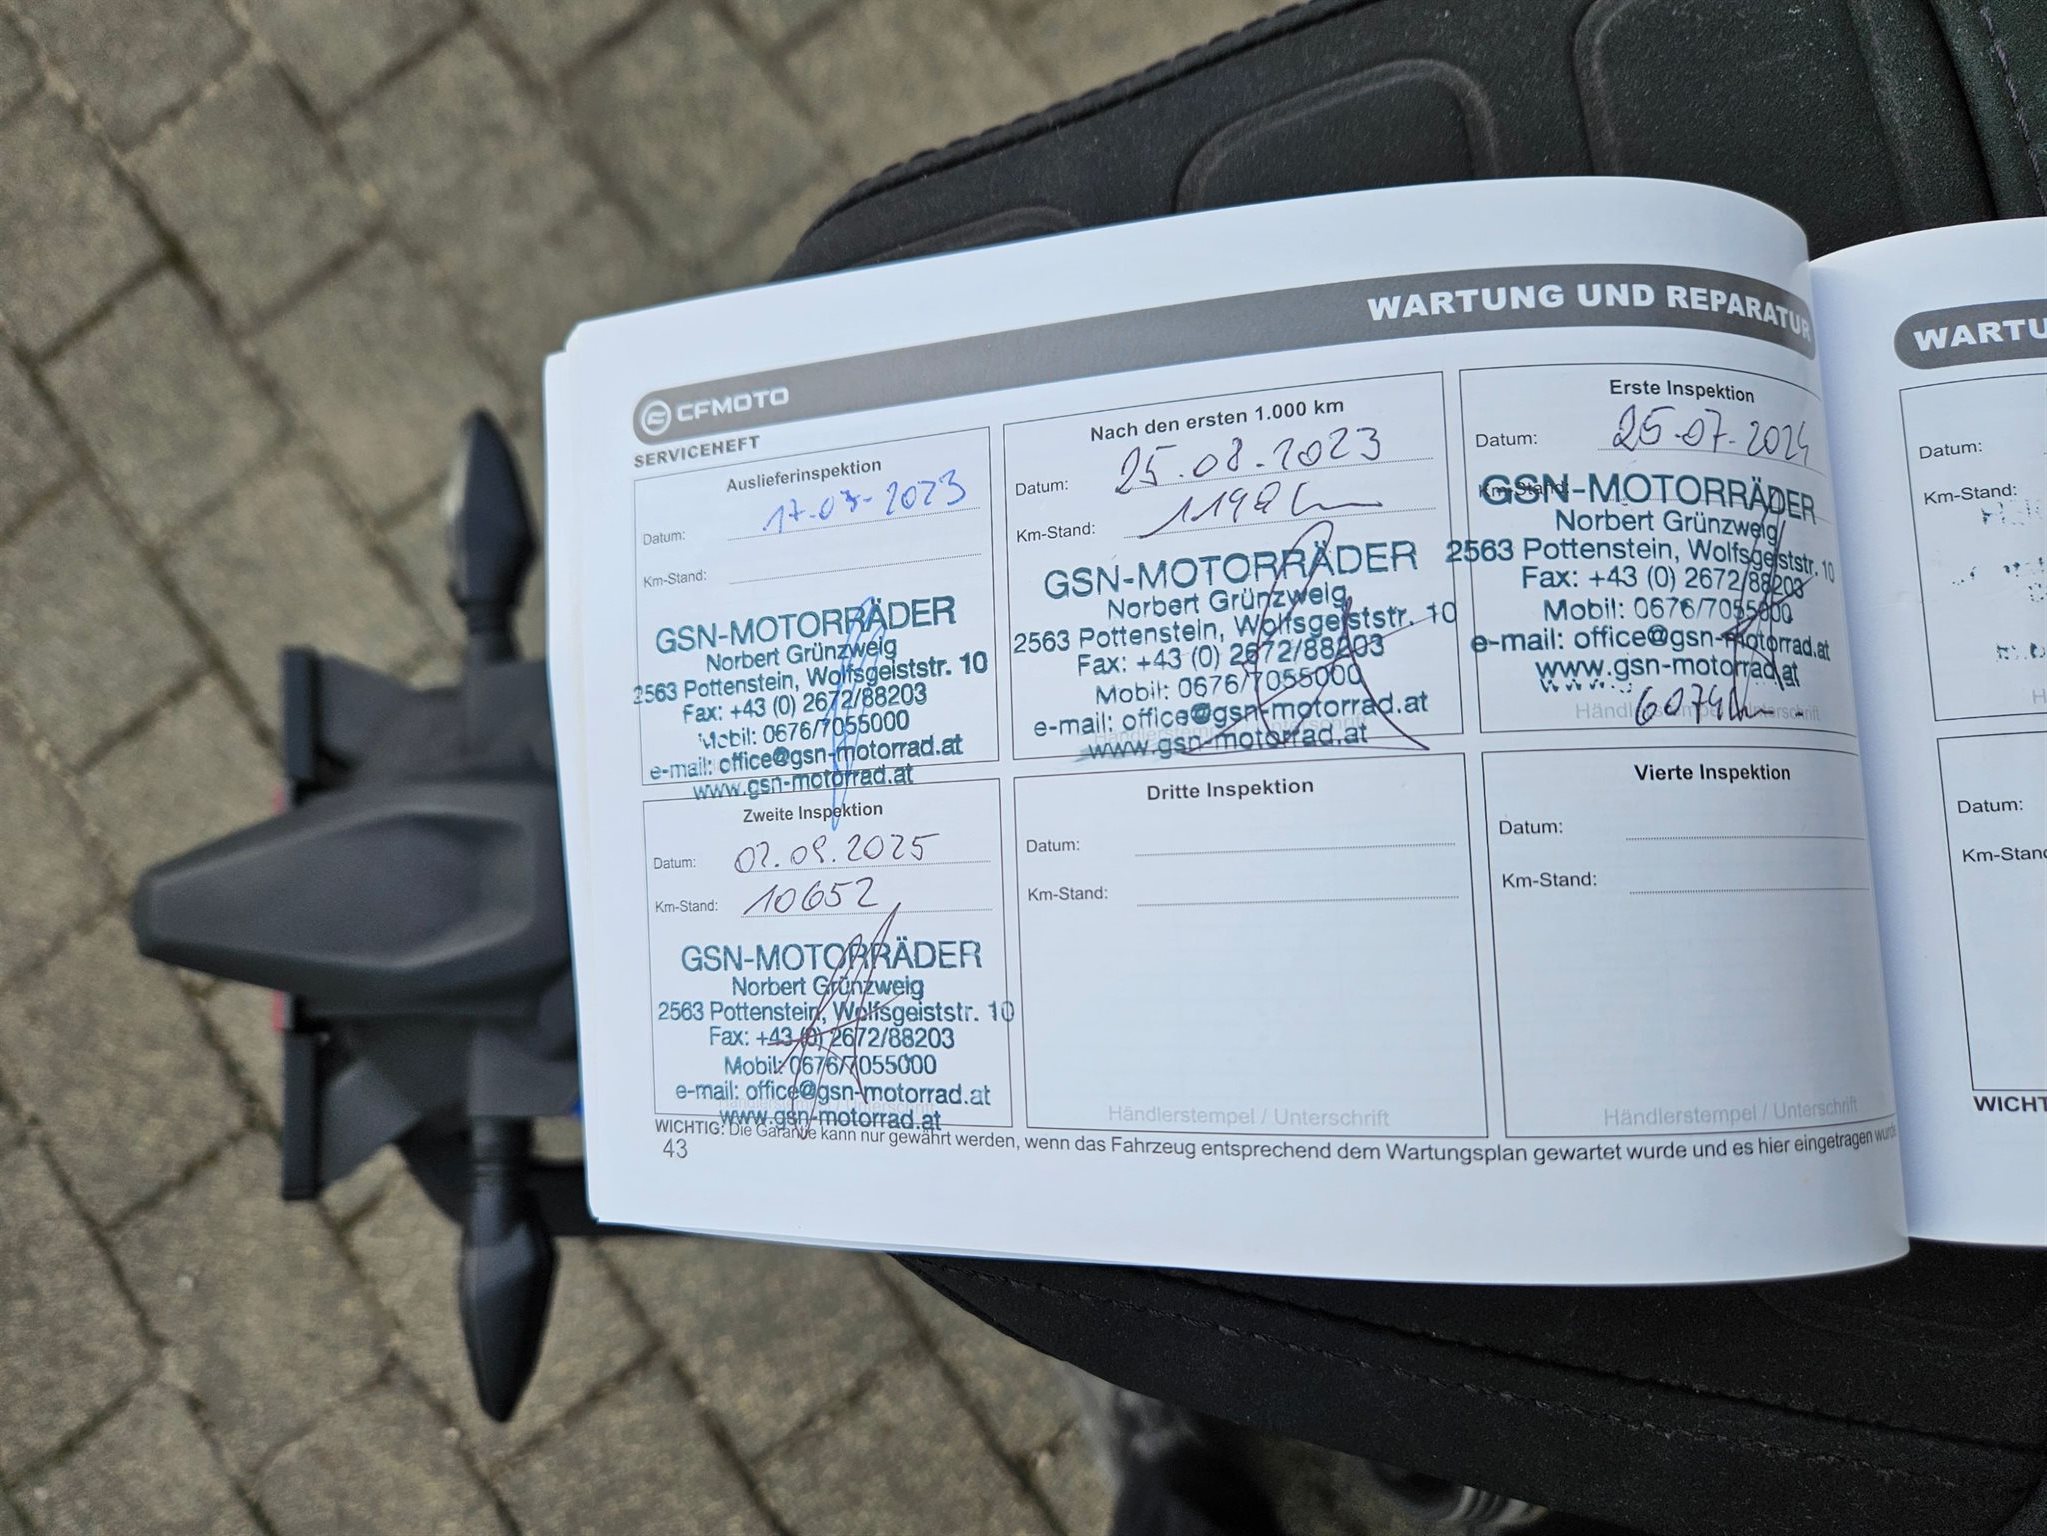 WARTUNG UND REPARATUR
CFMOTO
SERVICEHEFT
Auslieferinspektion
Datum: 17.07.2023
Km-Stand:
GSN-MOTORRÄDER
Norbert Grünzweig
2563 Pottenstein, Wolfsgeiststr. 10
Fax: +43 (0) 2672/88203
Mobil: 0676/7055000
e-mail: office@gsn-motorrad.at
www.gsn-motorrad.at
Nach den ersten 1.000 km
Datum: 25.08.2023
Km-Stand: 1198 km
GSN-MOTORRÄDER
Norbert Grünzweig
2563 Pottenstein, Wolfsgeiststr. 10
Fax: +43 (0) 2672/88203
Mobil: 0676/7055000
e-mail: office@gsn-motorrad.at
www.gsn-motorrad.at
Erste Inspektion
Datum: 25.07.2024
Km-Stand:
GSN-MOTORRÄDER
Norbert Grünzweig
2563 Pottenstein, Wolfsgeiststr. 10
Fax: +43 (0) 2672/88203
Mobil: 0676/7055000
e-mail: office@gsn-motorrad.at
www.gsn-motorrad.at
6074 km
Händlerstempel / Unterschrift
Zweite Inspektion
Datum: 02.09.2025
Km-Stand: 10652
GSN-MOTORRÄDER
Norbert Grünzweig
2563 Pottenstein, Wolfsgeiststr. 10
Fax: +43 (0) 2672/88203
Mobil: 0676/7055000
e-mail: office@gsn-motorrad.at
www.gsn-motorrad.at
Dritte Inspektion
Datum:
Km-Stand:
Händlerstempel / Unterschrift
Vierte Inspektion
Datum:
Km-Stand:
Händlerstempel / Unterschrift
WICHTIG: Die Garantie kann nur gewährt werden, wenn das Fahrzeug entsprechend dem Wartungsplan gewartet wurde und es hier eingetragen wurde
43
WARTU
Datum:
Km-Stand:
Datum:
Km-Stand
WICHT